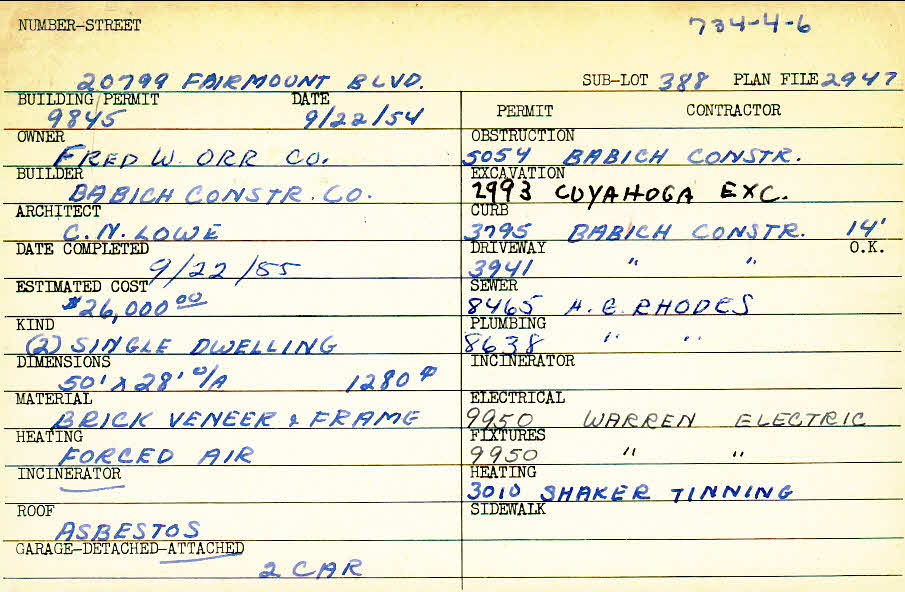 NUMBER-STREET 734-4-6
20799 FAIRMOUNT BLVD. SUB-LOT 388 PLAN FILE 2947
BUILDING PERMIT DATE
9845 9/22/54
OWNER
FRED W. ORR CO.
BUILDER
BABICH CONSTR. CO.
ARCHITECT
C.N. LOWE
DATE COMPLETED
9/22/55
ESTIMATED COST
$26,000 00
KIND
(2) SINGLE DWELLING
DIMENSIONS
50' X 28' O/A 1280
MATERIAL
BRICK VENEER & FRAME
HEATING
FORCED AIR
INCINERATOR
ROOF
ASBESTOS
GARAGE-DETACHED-ATTACHED
2 CAR
PERMIT CONTRACTOR
OBSTRUCTION
5054 BABICH CONSTR.
EXCAVATION
2993 CUYAHOGA EXC.
CURB
3795 BABICH CONSTR. 14'
DRIVEWAY O.K.
3941 " "
SEWER
8465 H.E. RHODES
PLUMBING
8638 " "
INCINERATOR
ELECTRICAL
9950 WARREN ELECTRIC
FIXTURES
9950 " "
HEATING
3010 SHAKER TINNING
SIDEWALK